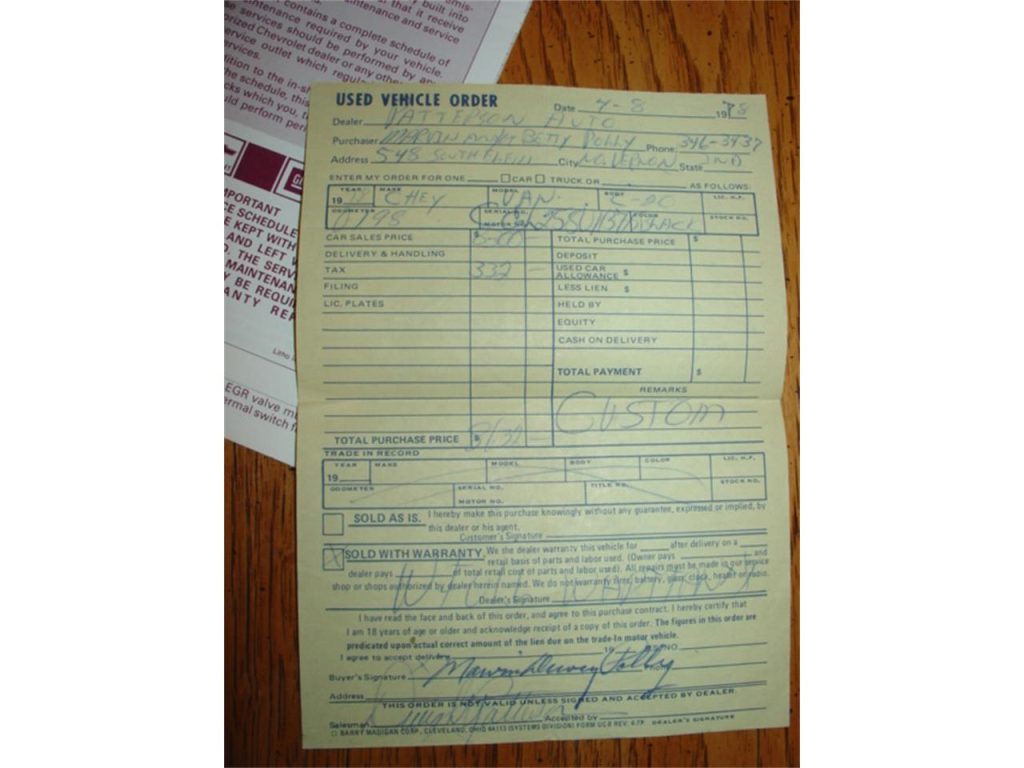 built into
that it receive
contains a complete schedule of
maintenance and service
maintenance required by your vehicle.
services should be performed by any
Chevrolet dealer or any other
service outlet which regul
services.
dition to the in-s
the schedule, this
cks which you, t
uld perform peri
IMPORTANT
SCHEDULE
KEPT WITH
AND LEFT
THE SERV
MAINTENAN
BE REQUI
Litho
EGR valve
ermal switch
USED VEHICLE ORDER
Date 4-8 1978
Dealer PATTERSON AUTO
Purchaser BETTY Phone: 346-3437
Address 548 SOUTH City NO. VERNON State IND
ENTER MY ORDER FOR ONE CAR TRUCK OR AS FOLLOWS:
YEAR 19 MAKE CHEV MODEL VAN BODY LIC. H.P.
ODOMETER SERIAL NO. COLOR BLACK STOCK NO.
CAR SALES PRICE $ TOTAL PURCHASE PRICE $
DELIVERY & HANDLING DEPOSIT
TAX 332 - USED CAR ALLOWANCE $
FILING LESS LIEN $
LIC. PLATES HELD BY
EQUITY
CASH ON DELIVERY
TOTAL PAYMENT $
REMARKS
CUSTOM
TOTAL PURCHASE PRICE $
TRADE IN RECORD
YEAR 19 MAKE MODEL BODY COLOR LIC. H.P.
ODOMETER SERIAL NO. TITLE NO. STOCK NO.
MOTOR NO.
SOLD AS IS. I hereby make this purchase knowingly without any guarantee, expressed or implied, by
this dealer or his agent.
Customer's Signature
X SOLD WITH WARRANTY. We the dealer warranty this vehicle for after delivery on a
retail basis of parts and labor used. (Owner pays and
dealer pays of total retail cost of parts and labor used). All repairs must be made in our service
shop or shops authorized by dealer herein named. We do not warranty tires, battery, glass, clock, heater or radio.
Dealer's Signature
I have read the face and back of this order, and agree to this purchase contract. I hereby certify that
I am 18 years of age or older and acknowledge receipt of a copy of this order. The figures in this order are
predicated upon actual correct amount of the lien due on the trade-in motor vehicle.
I agree to accept delivery 19 NO
Buyer's Signature
Address
THIS ORDER IS NOT VALID UNLESS SIGNED AND ACCEPTED BY DEALER.
Salesman Accepted by
DEALER'S SIGNATURE
BARRY MADIGAN CORP., CLEVELAND, OHIO 44113 (SYSTEMS DIVISION) FORM